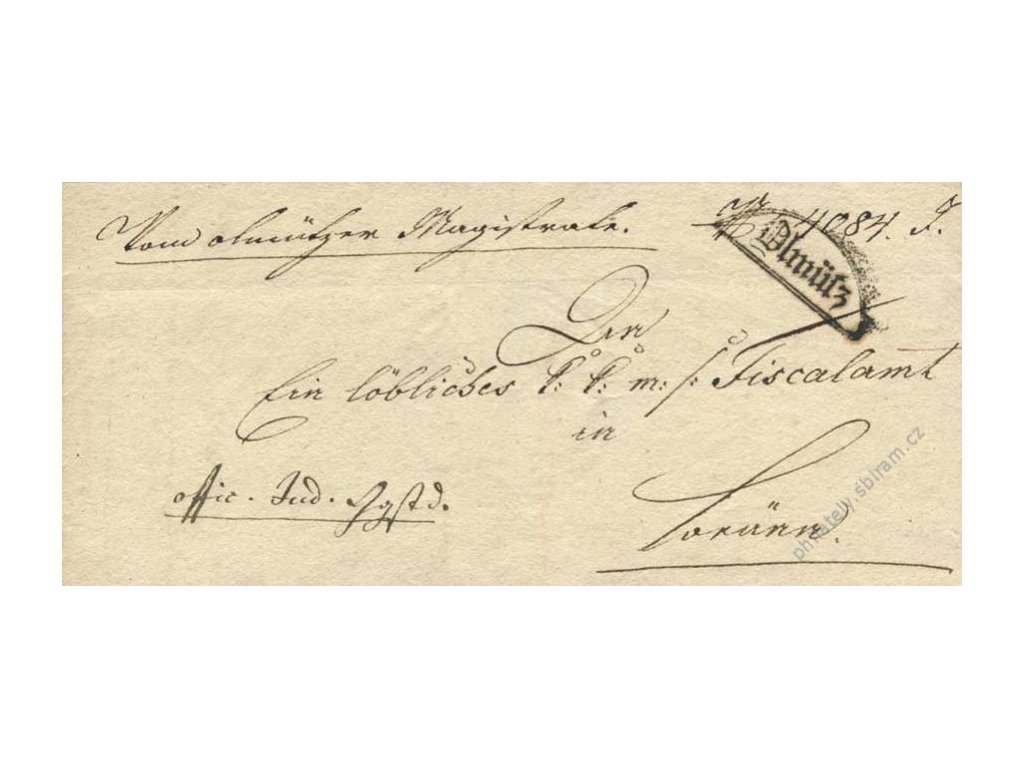 Vom olmützer Magistrate.
N 4084. J.
Olmütz
An
Ein löbliches k: k: m: s: Fiscalamt
in
offic. Jud.
Brünn.
philately.sbiram.cz